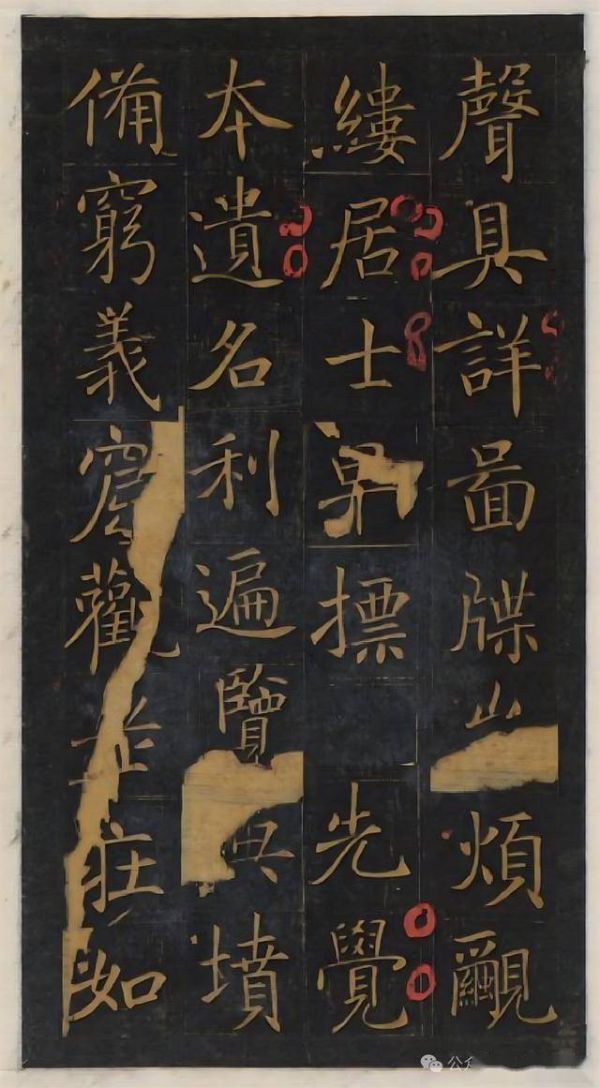 聲具詳啚牒煩覼
縷居士標先覺
本遺名利遍覽墳
備窮義觀莊如
公